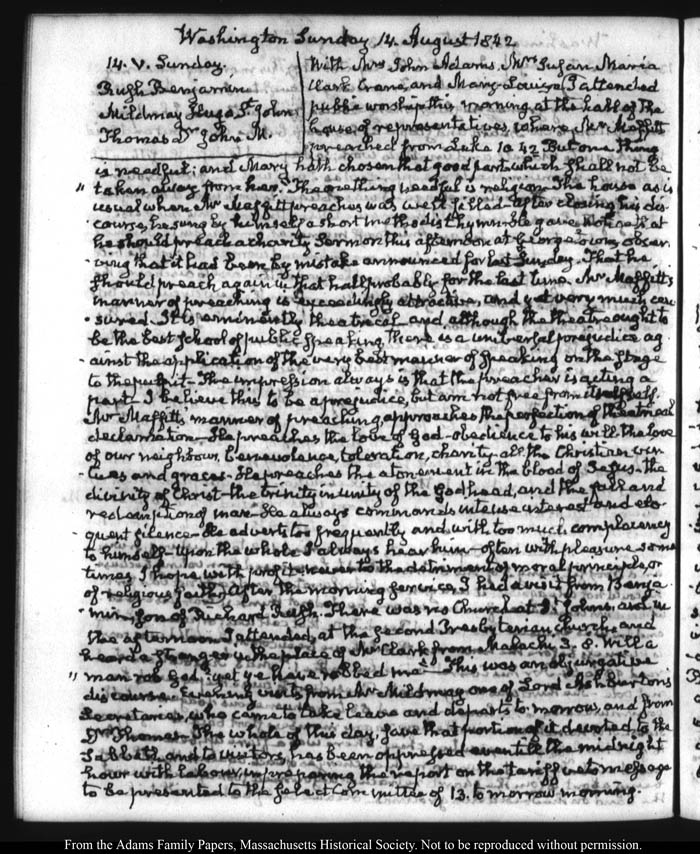 Washington Sunday 14. August 1842
14. V. Sunday.
Rush Benjamin
Mildmay Hugo St. John
Thomas Dr. John M.
With Mrs John Adams, Mrs Susan Maria
Clark Crane, and Mary-Louisa I attended
public worship this morning at the hall of the
house of representatives, where Mr Maffitt
preached from Luke 10. 42. But one thing
is needful: and Mary hath chosen that good part which shall not be
" taken away from her." The one thing needful is religion. The house as is
usual when Mr Maffitt preaches was well filled. After closing his dis-
-course, he sung by himself a short methodist hymn. He gave notice that
he should preach a charity Sermon this afternoon at Georgetown, obser-
-ving that it had been by mistake announced for last Sunday. That he
should preach again in that hall probably for the last time. Mr. Maffitt's
manner of preaching is exceedingly attractive, and yet very much cen-
-sured. It is eminently theatrical and although the theatre ought to
be the best school of public speaking, there is a universal prejudice ag-
-ainst the application of the very best manner of speaking on the stage
to the pulpit— The impression always is that the preacher is acting a
part— I believe this to be a prejudice, but am not free from it myself.
Mr Maffitt's manner of preaching, approaches the perfection of theatrical
declamation— He preaches the love of God— obedience to his will the love
of our neighbour, benevolence, toleration, charity— all the Christian vir-
-tues and graces— He preaches the atonement in the blood of Jesus— the
divinity of Christ— the trinity in unity of the Godhead, and the fall and
redemption of man— He always commands intense interest and elo-
-quent silence— He adverts too frequently and with too much complacency
to himself— Upon the whole I always hear him— often with pleasure some-
times I hope with profit— never to the detriment of moral principle, or
of religious faith. After the morning service, I had a visit from Benja-
-min, son of Richard Rush. There was no Church at St. Johns and in
the afternoon I attended, at the second Presbyterian church, and
heard a stranger in the place of Mr Clark from Malachi 3. 8. Will a
man rob God? yet ye have robbed me." This was an objurgative
" discourse. Evening visits from Mr Mildmay one of Lord Ashburton's
Secretaries, who came to take leave and departs to-morrow, and from
Dr Thomas. The whole of this day, save that portion of it devoted to the
Sabbath and to visitors, has been oppressed even till the midnight
hour with labour, in preparing the report on the tariff veto message
to be presented to the select Committee of 13. to morrow morning.
From the Adams Family Papers, Massachusetts Historical Society. Not to be reproduced without permission.